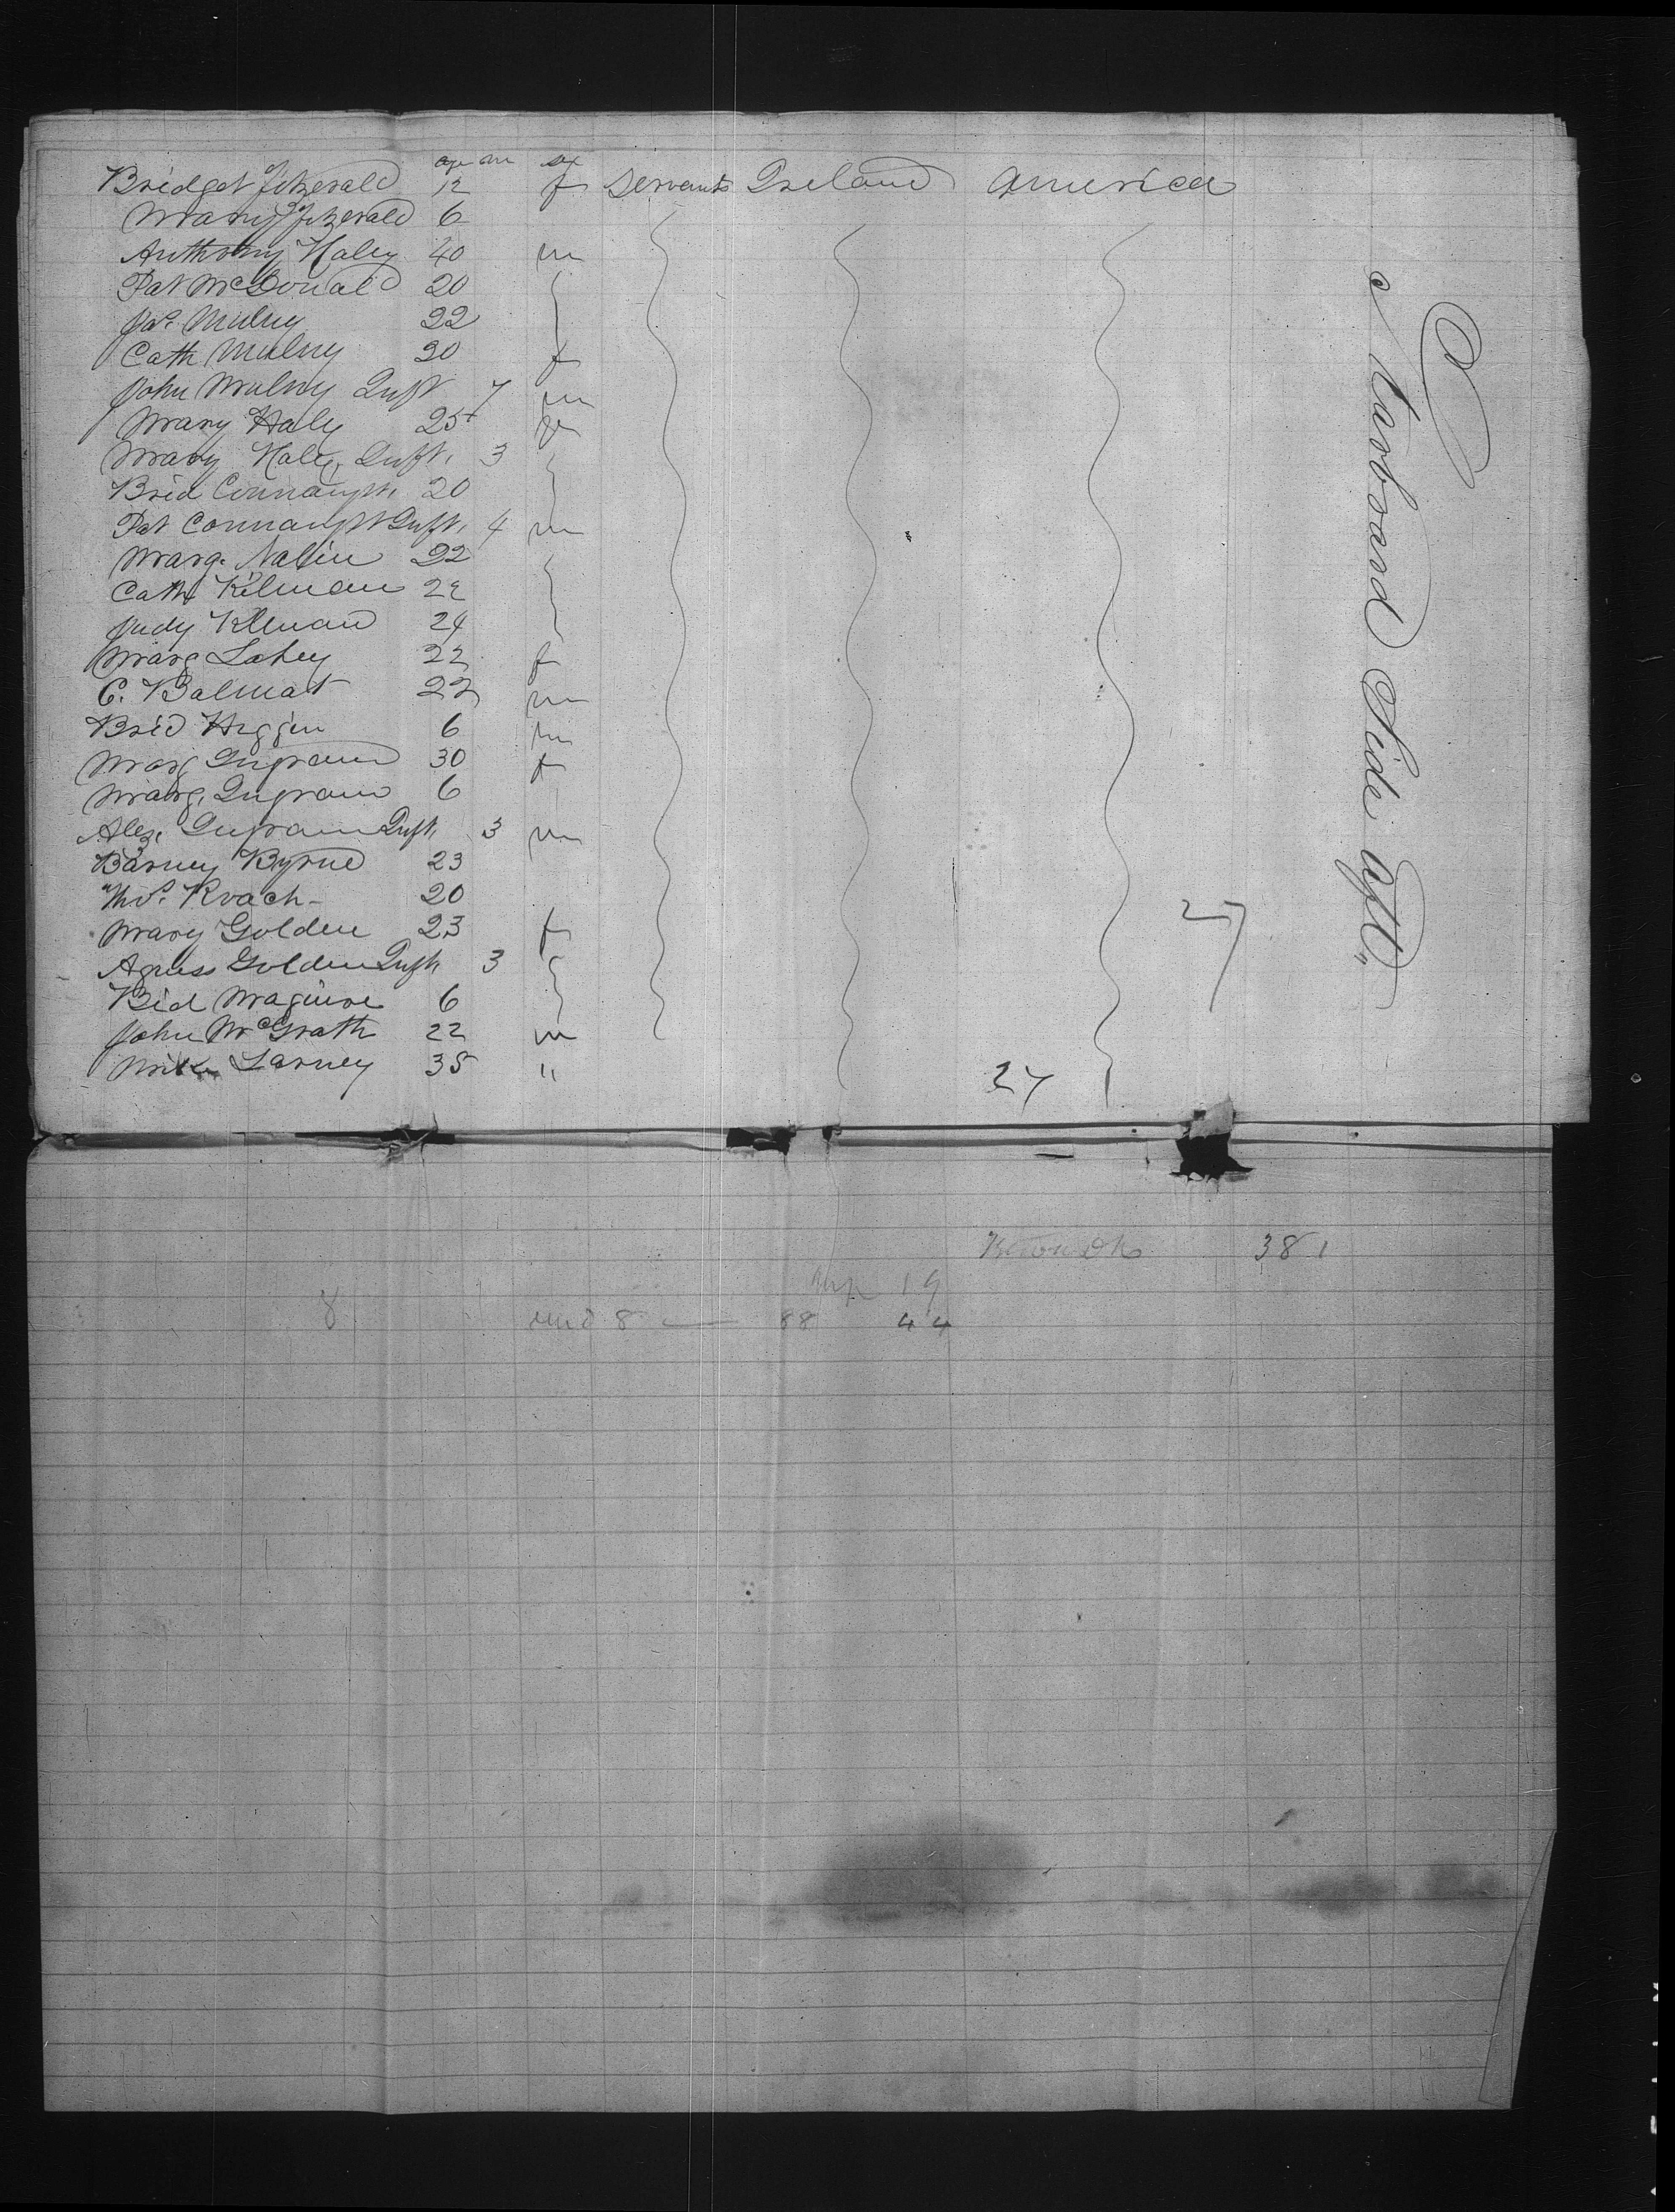 age m sex
Bridget Fitzerald 12 f Servants Ireland America
Mary Fitzerald 6
Anthony Haley 40 m
Pat McDonald 20
Jas. Mulny 22
Cath Mulny 20 f
John Mulny Inft 7 m
Mary Haly 25 f
Mary Haley Inft. 3
Brid Connaught. 20
Pat Connaught Inft. 4 m
Marg. Nalin 22
Cath Kilman 22
Judy Kilman 24
Marg Lahey 22 f
C. Balmat 22 m
Brid Higgin 6 m
Marg Ingram 30 f
Marg. Ingram 6
Alex. Ingram Inft. 3 m
Barney Byrne 23
Thos. Roach 20
Mary Golden 23 f
Agness Golden Inft 3
Bid Maguire 6
John McGrath 22 m
Mike Larney 35 "
27
27
Starboard Side Aft"
381
19
8
88 44